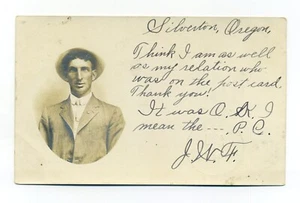 Silverton, Oregon,
Think I am as well
as my relation who
was on the post card.
Thank you!
It was O.K. I
mean the --- P.C.
J.W.F.